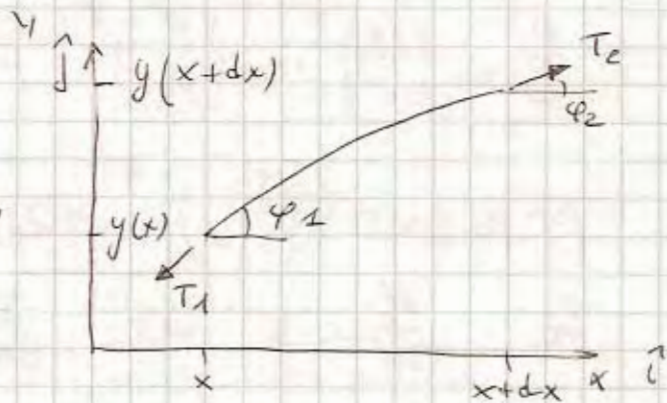 y
ĵ y(x+dx)
T₂
φ₂
y(x) φ1
T₁
x x+dx x î